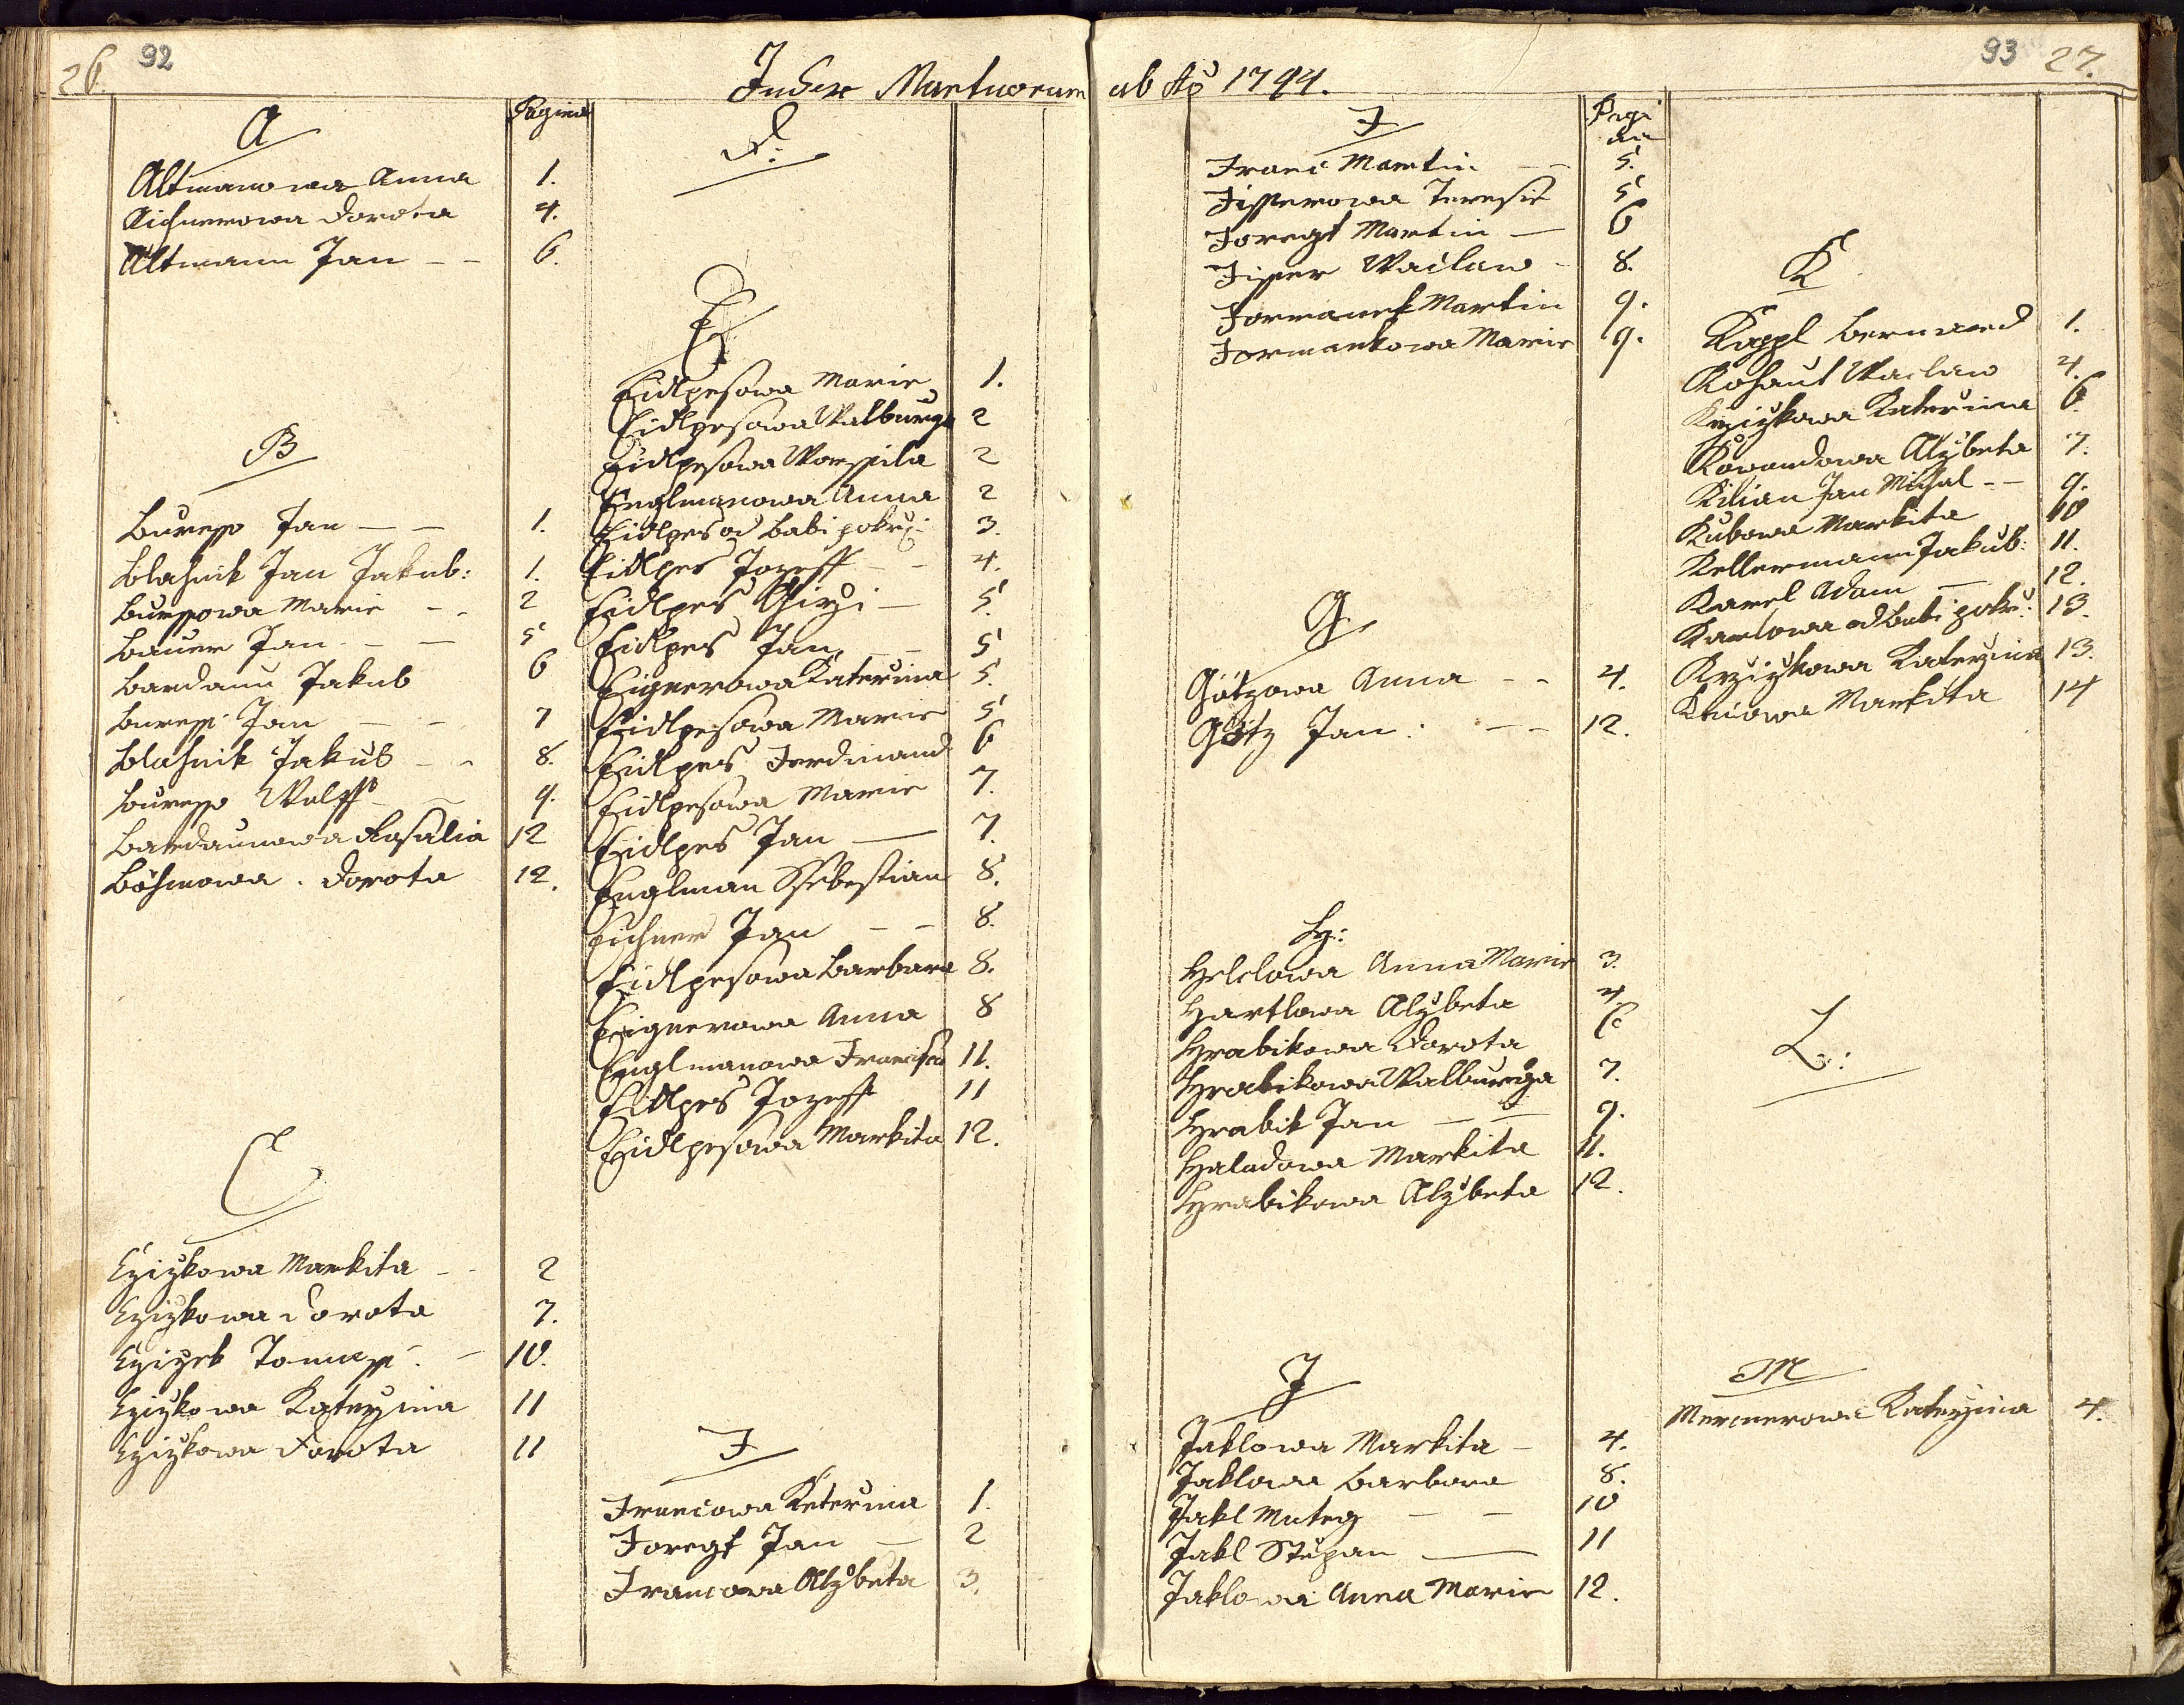 26. 92
Index Mortuorum ab Ao 1794.
93 27.
A
Pagina
Altmanowa Anna 1.
Aichnerowa Dorota 4.
Altmann Jan - - 6.
B
Buress Jan - - 1.
Blahnik Jan Jakub: 1.
Buressowa Marie - - 2
Bauer Jan - - 5
Bardaun Jakub 6
Buress Jan - - 7
Blahnik Jakub - - 8.
Buress Wolff - - 9.
Bardaunowa Rosalia 12
Böhmowa Dorota 12.
C
Czizkowa Markita - - 2
Czizkowa Dorota 7.
Czizek Tomass - 10.
Czizkowa Katerzina 11
Czizkowa Dorota 11
D:
E
Eidlpesowa Marie 1.
Eidlpesowa Walburga 2
Eidlpesowa Worssila 2
Englmanowa Anna 2
Eidlpes od Babi pokrz: 3.
Eidlpes Jozeff - - 4.
Eidlpes Girzi - 5.
Eidlpes Jan - - 5
Eignerowa Katerina 5.
Eidlpesowa Marie 5
Eidlpes Ferdinand 6
Eidlpesowa Marie 7.
Eidlpes Jan - 7.
Englman Ssebestian 8.
Eichner Jan - - 8.
Eidlpesowa Barbara 8.
Eignerowa Anna 8
Englmanowa Francisca 11.
Eidlpes Jozeff 11
Eidlpesowa Markita 12.
F
Franciowa Katerina 1.
Foregt Jan - 2
Franciowa Alzbeta 3.
F
Pagina
Franc Martin - - 5.
Fisserowa Teresie 5
Foregt Martin - 6
Fisser Waclaw - 8.
Formanek Martin 9.
Formankowa Marie 9.
G
Götzowa Anna - - 4.
Götz Jan - - 12.
H:
Helclowa Anna Marie 3.
Hartlowa Alzbeta 4.
Hrabikowa Dorota 6
Hrabikowa Walburga 7.
Hrabik Jan - - 9.
Haladowa Markita 11.
Hrabikowa Alzbeta 12.
J
Jaklowa Markita - 4.
Jaklowa Barbora 8.
Jakl Mateg - - 10
Jakl Stěpan - 11
Jaklowa Anna Marie 12.
K
Kappl Bernard 1.
Kohaut Waclaw 4.
Krzizkowa Katerina 6.
Kowandowa Alzbeta 7.
Kilian Jan Michal - - 9.
Kubowa Markita 10
Kellermann Jakub: 11.
Karel Adam - 12.
Karlowa od Babi pokrz: 13.
Krzizkowa Katerzina 13.
Markita 14
L:
M
Katerzina 4.